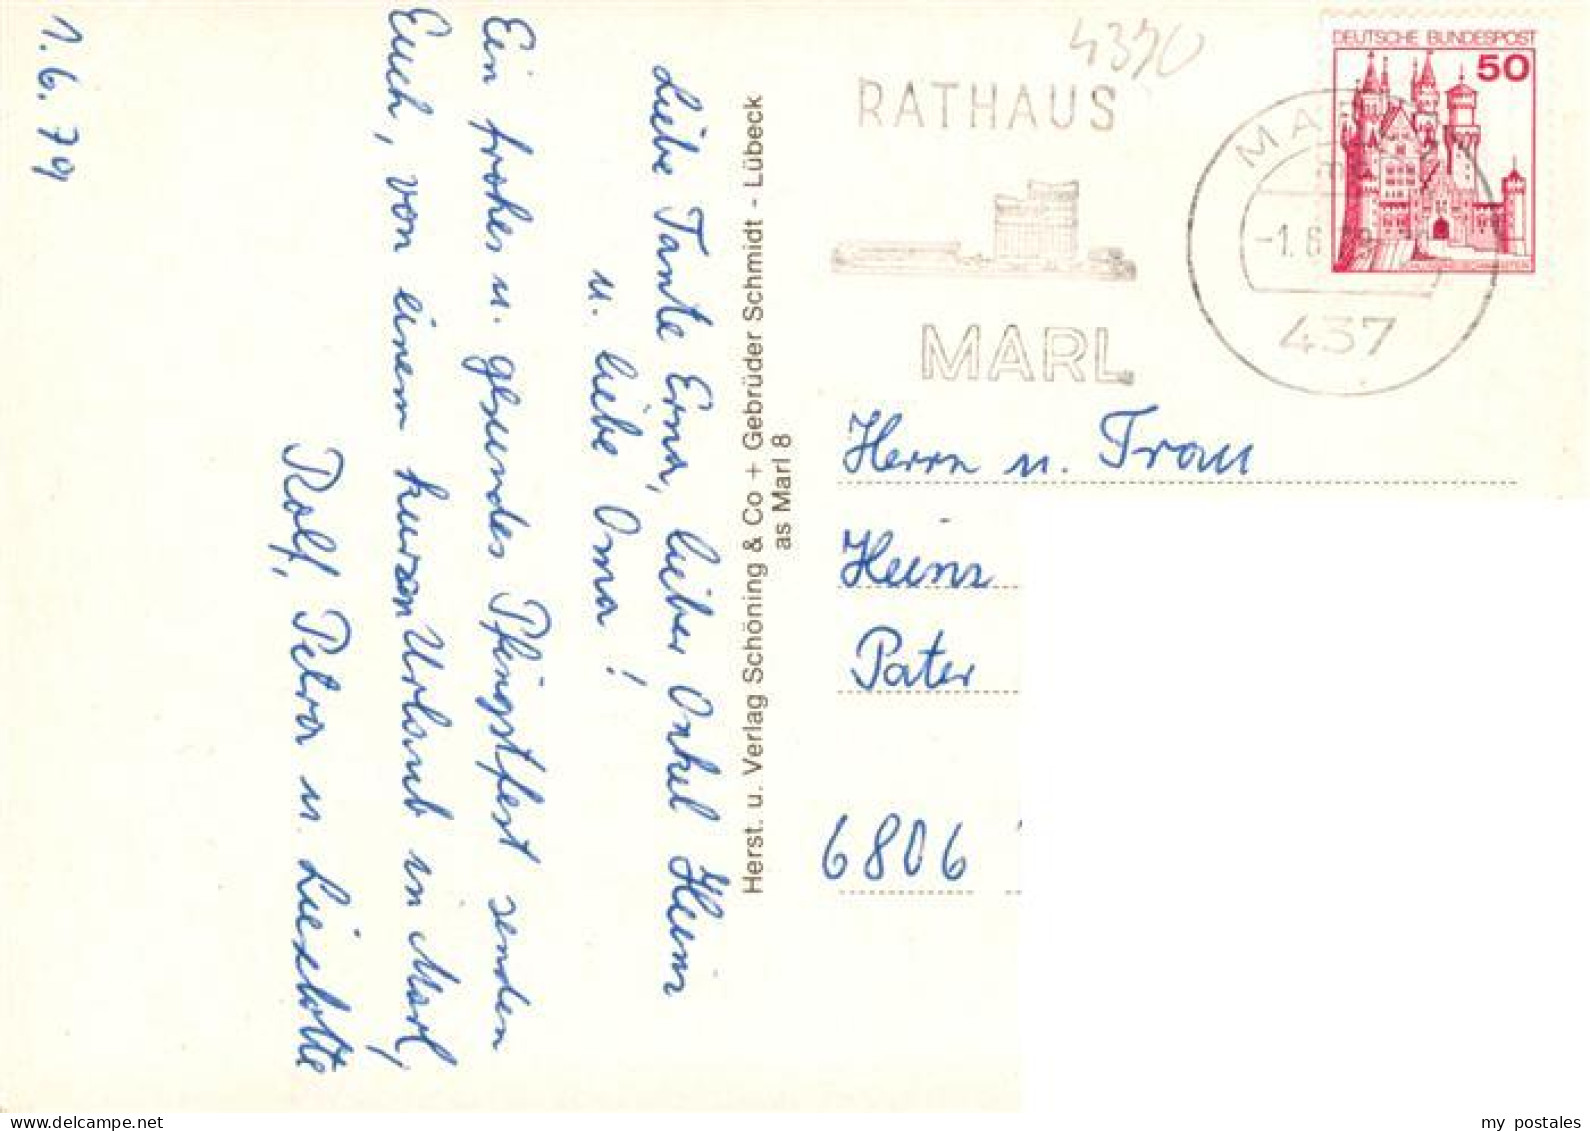 1.6.79
Liebe Tante Erna, lieber Onkel Heinz
u. liebe Oma!
Ein frohes u. gesundes Pfingstfest senden
Euch, von einem kurzen Urlaub in Marl,
Rolf, Petra u. Liselotte
Herst. u. Verlag Schöning & Co + Gebrüder Schmidt - Lübeck
as Marl 8
4370
RATHAUS
MARL
-1.6.79
437
DEUTSCHE BUNDESPOST
50
Herrn u. Frau
Heinz
Pater
6806
delcampe.net
my_postales